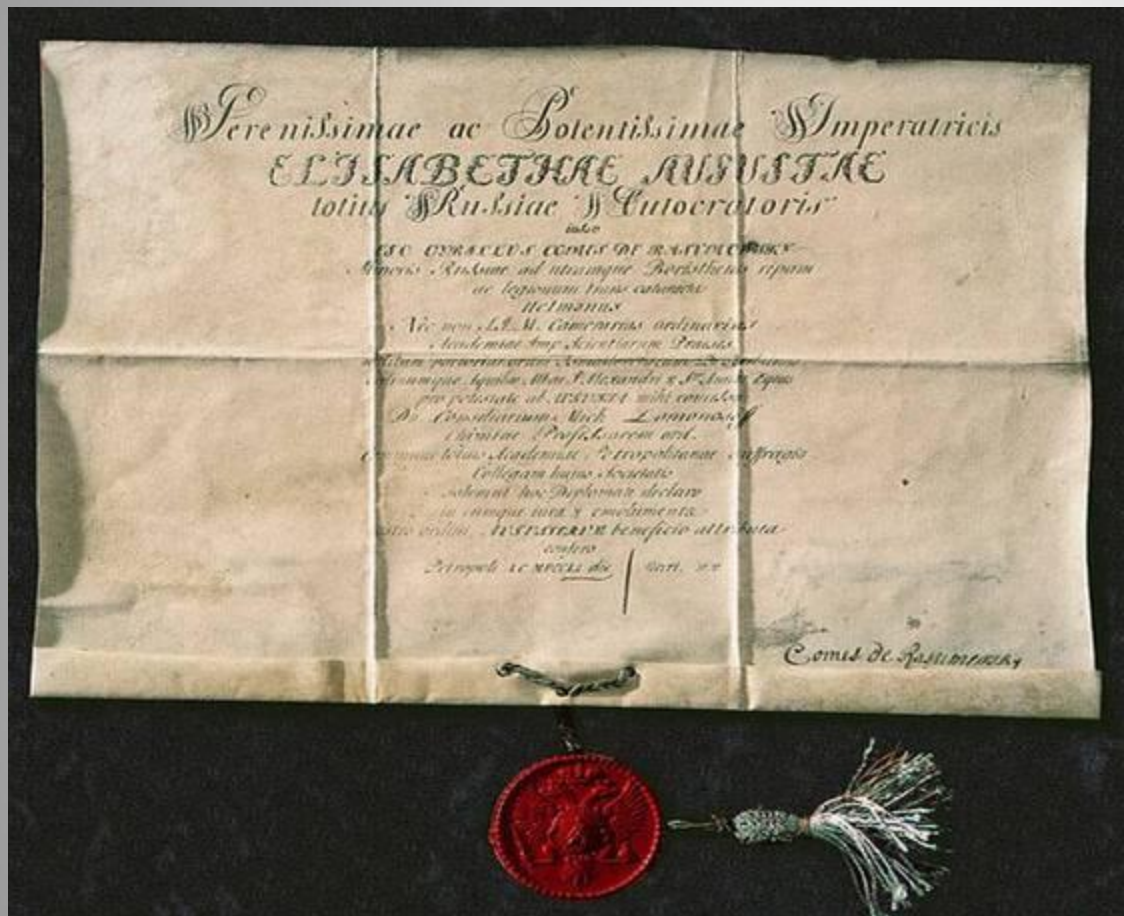 Serenissimae ac Potentissimae Imperatricis
ELISABETHAE AUGUSTAE
totius Russiae Autocratoris
iussu
EGO CYRILLUS COMES DE RASUMOWSKY
Minoris Russiae ad utramque Boristhenis ripam
ac legionum trans
Hetmanus
Nec non S.I.M. Camerarius ordinarius
Academiae Imp. Scientiarum Praeses
Aquilae Albae S. Alexandri & Stae Annae Eques
pro potestate ab AUGUSTA mihi concessa
Dn. Consiliarium Mich. Lomonosoff
Chimiae Professorem ord.
totius Academiae Petropolitanae suffragio
Collegam huius Societatis
solemni hoc Diplomate declaro
iura & emolumenta
ordini AUGUSTAE beneficio attributa
confero
Petropoli MDCCLI die
Comes de Rasumowsky